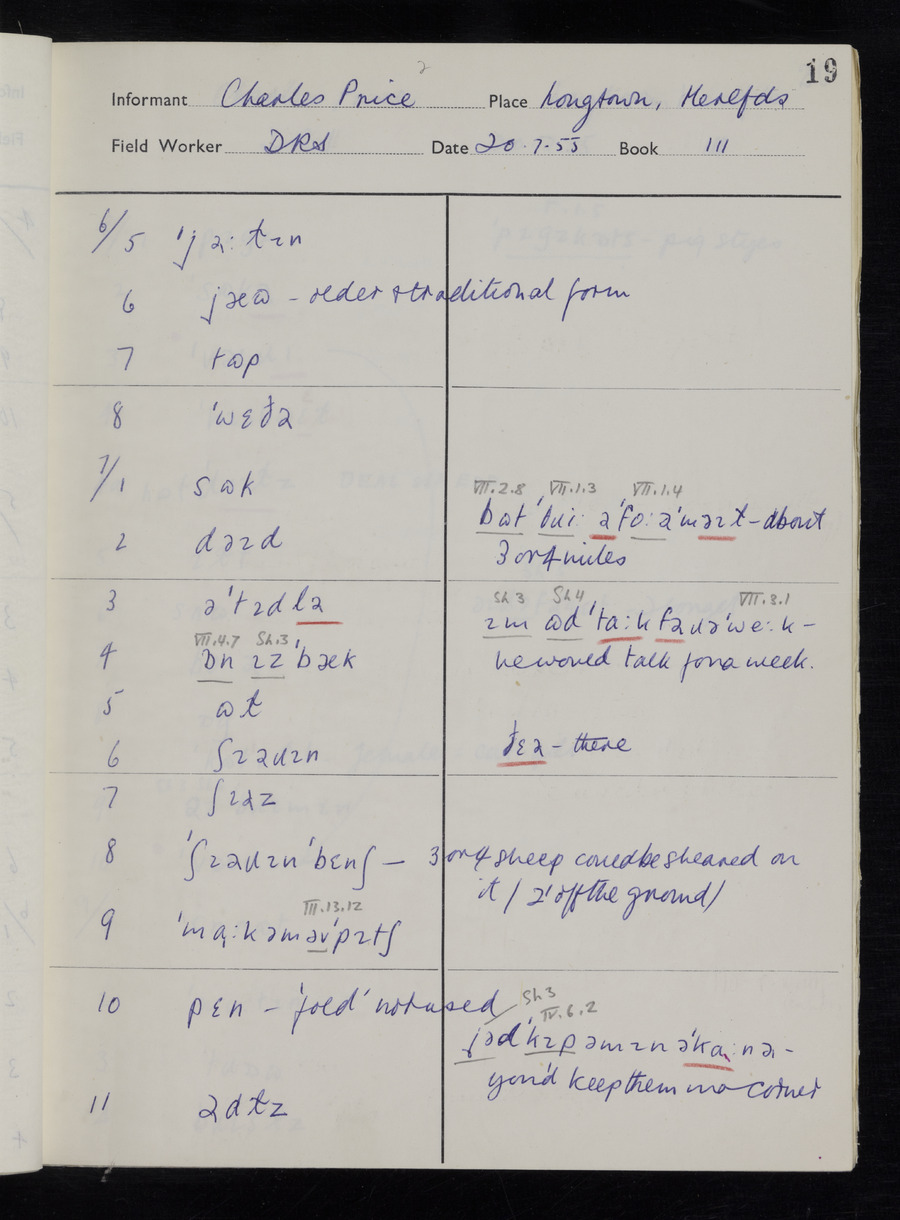 19
Informant Charles Price Place Longtown, Herefds
Field Worker DRS Date 20.7.55 Book III
6/5
6 jæɷ – older & traditional form
7 tɷp
8 ˈwɛðə
7/1 sɷk
VII.2.8 VII.1.3 VII.1.4
– about
2 dəɪd
3 or 4 miles
3
Sh 3 Sh 4 VII.3.1
4
VII.4.7 Sh.3
ɒn ɪz ˈbæk
he would talk for a week.
5 ɷt
6 ʃɪəɹɪn
ðɛə – there
7 ʃɪəz
8 ˈʃɪəɹɪnˈbɛnʃ – 3 or 4 sheep could be sheared on
it / 2' off the ground /
III.13.12
9 ˈmaːkəməvˈpɪtʃ
10 pɛn – 'fold' not used
Sh 3
IV.6.2
jəd ˈkɪp əm ɪn ə ˈkɑːnə –
you'd keep them in a corner
11